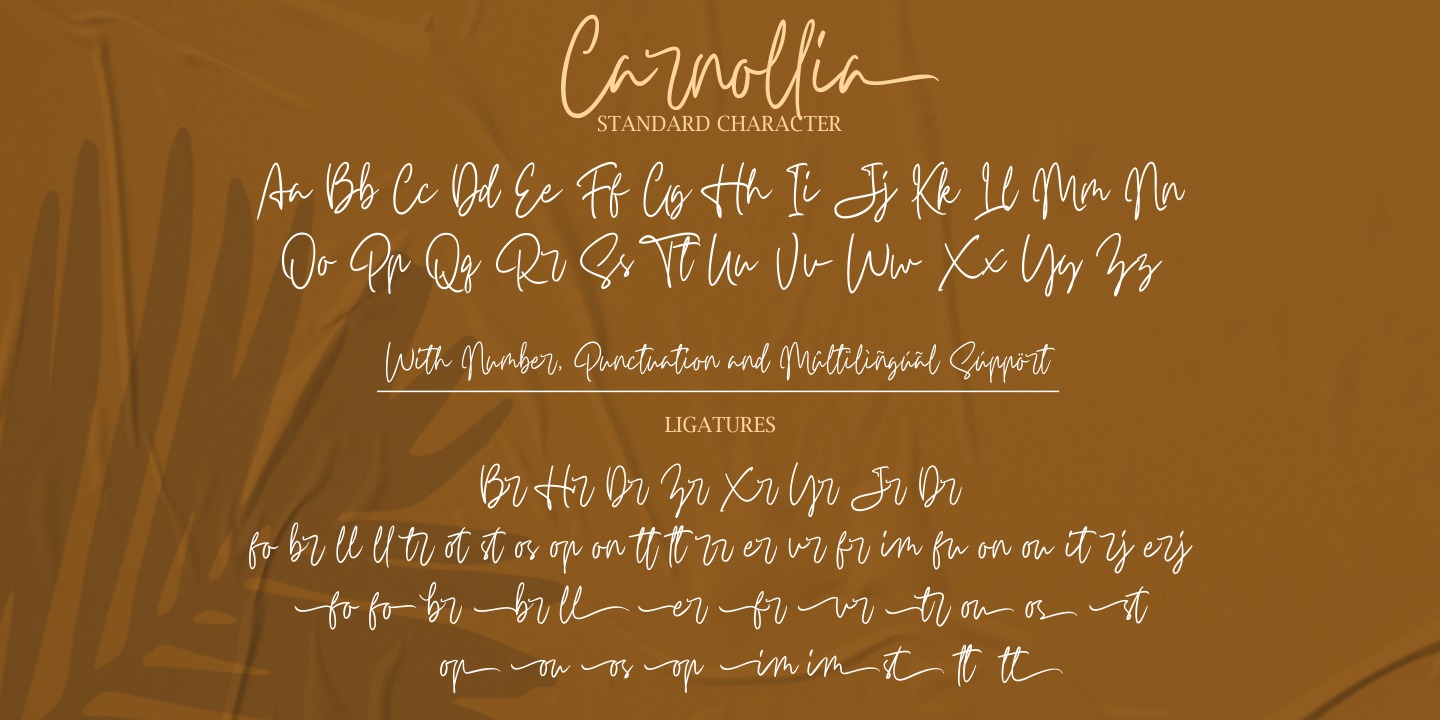 Carnollia
STANDARD CHARACTER
Aa Bb Cc Dd Ee Ff Gg Hh Ii Jj Kk Ll Mm Nn
Oo Pp Qq Rr Ss Tt Uu Vv Ww Xx Yy Zz
With Number, Punctuation and Múltilìñgúãl Súppört
LIGATURES
Br Hr Dr Zr Xr Yr Jr Dr
fo br ll ll tr ot st os op on tt tt rr er vr fr im fu on ou it rj erj
fo fo br br ll er fr vr tr ou os st
op ou os op im im st tt tt